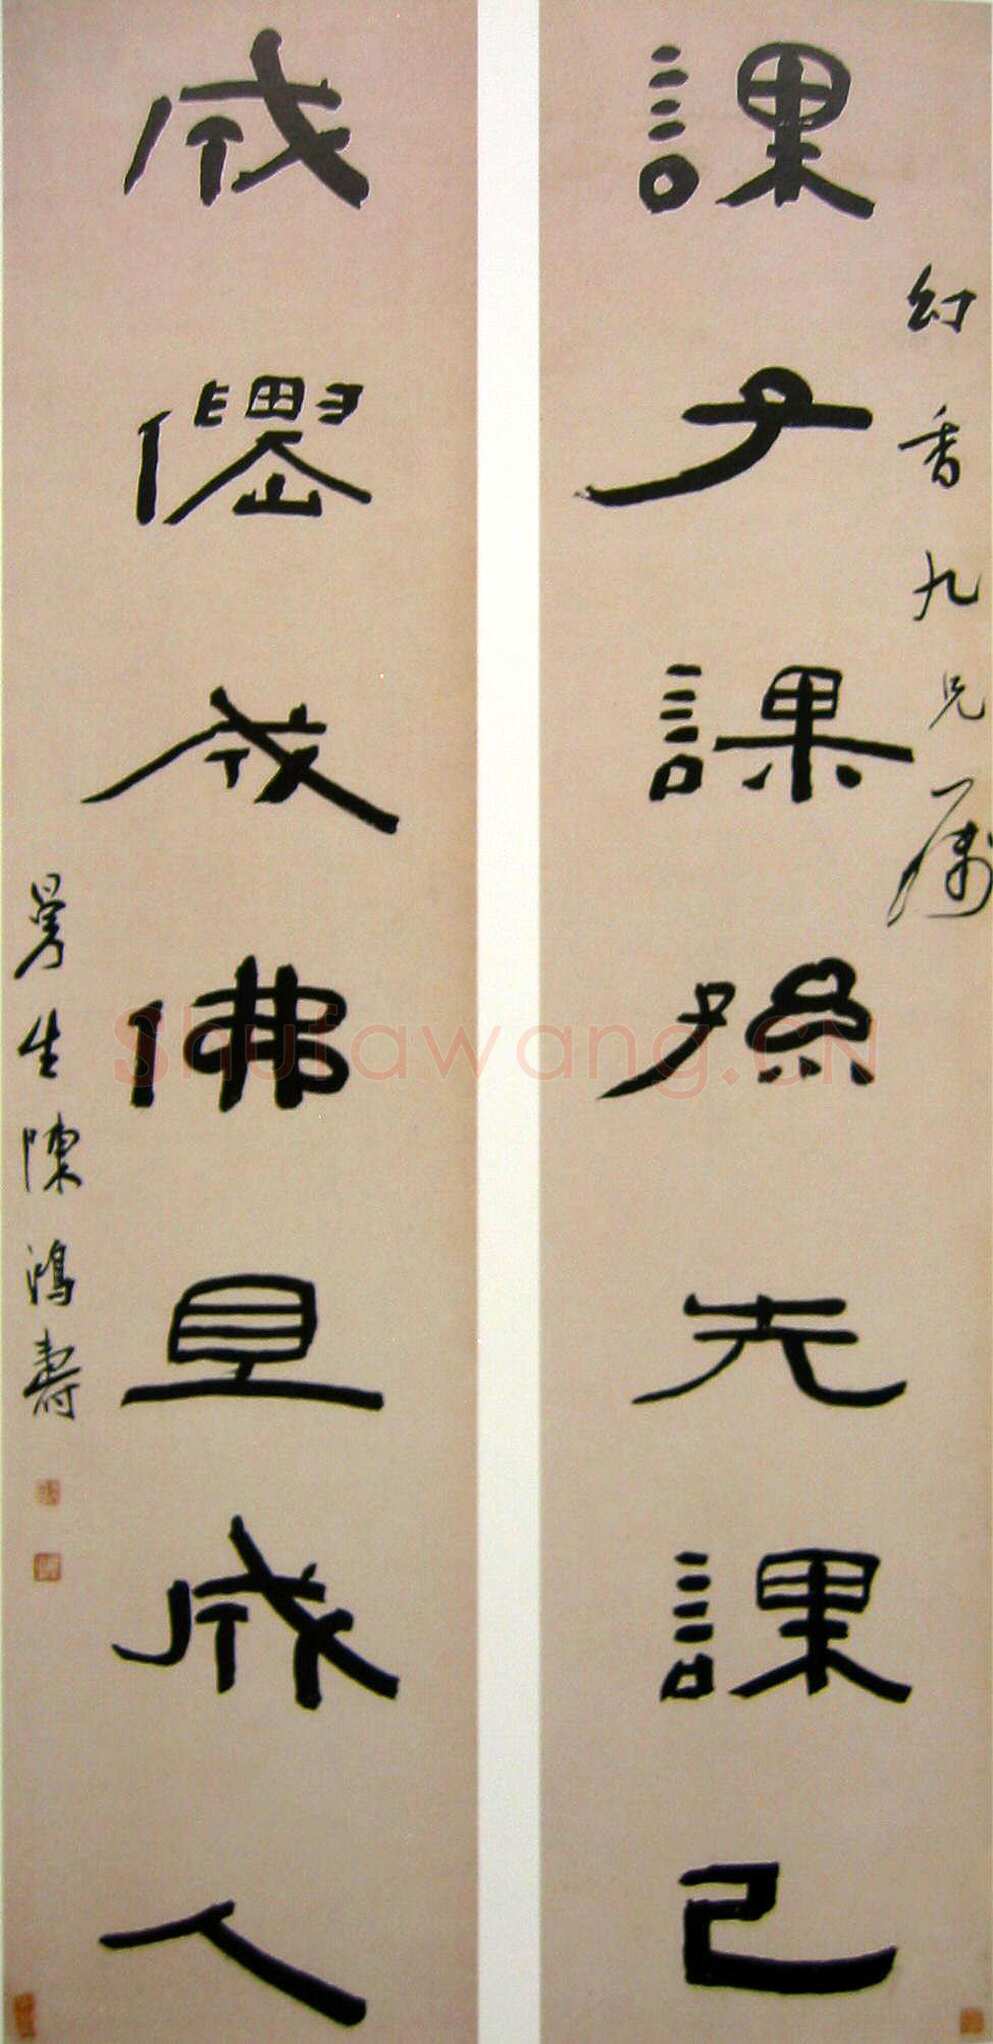 幻香九兄属
課子課孫先課己
成僊成佛且成人
曼生陳鴻壽
Shufawang.CN